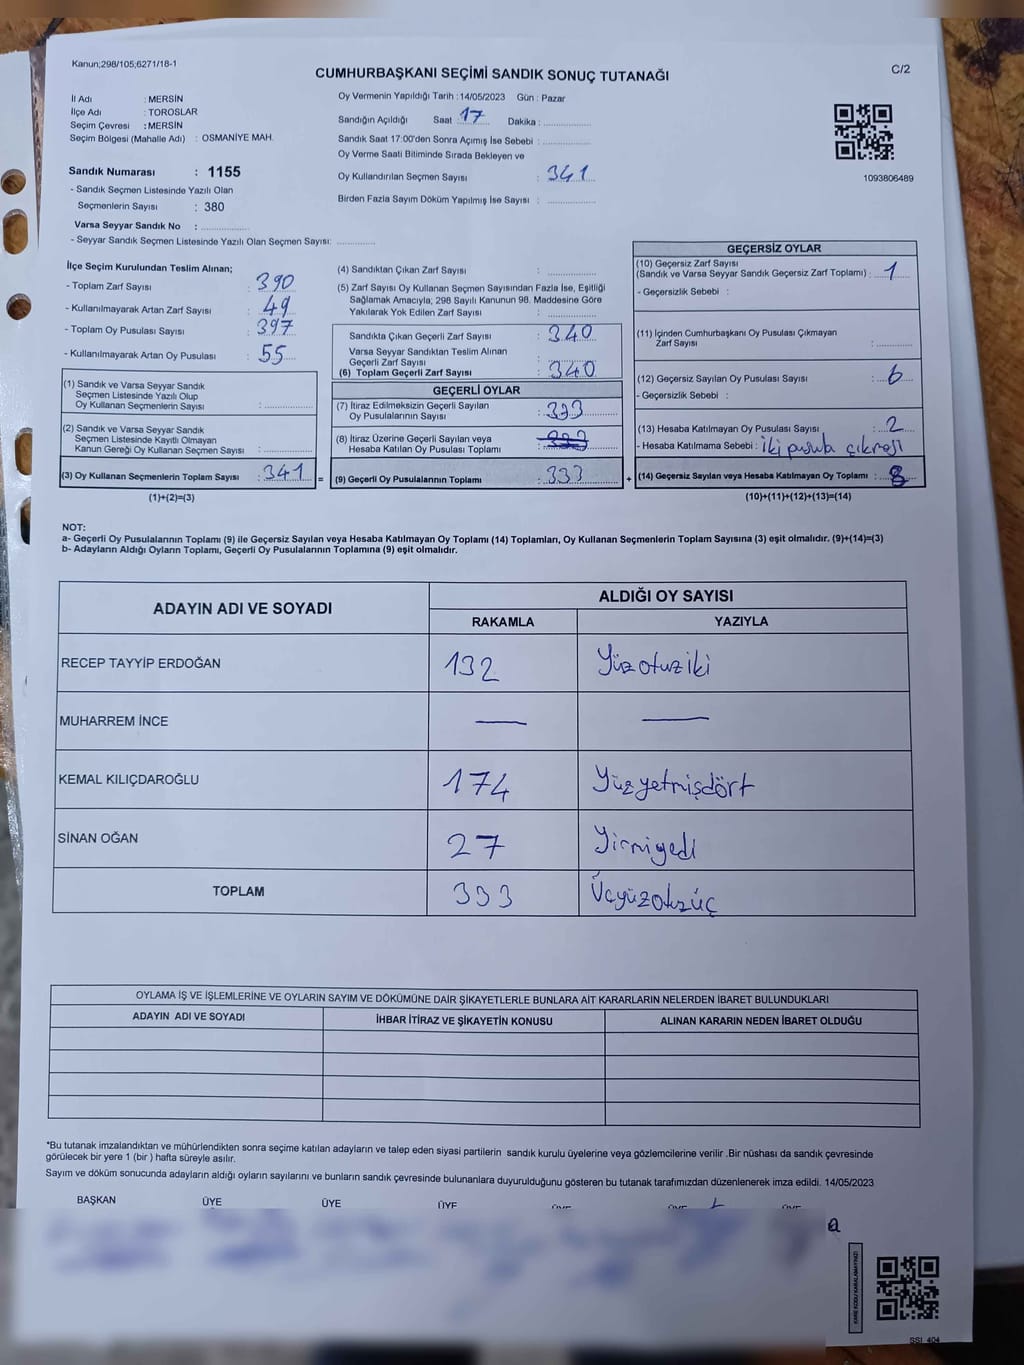 Kanun;298/105;6271/18-1
C/2
CUMHURBAŞKANI SEÇİMİ SANDIK SONUÇ TUTANAĞI
İl Adı : MERSİN
İlçe Adı : TOROSLAR
Seçim Çevresi : MERSİN
Seçim Bölgesi (Mahalle Adı) : OSMANİYE MAH.
Sandık Numarası : 1155
- Sandık Seçmen Listesinde Yazılı Olan
Seçmenlerin Sayısı : 380
Varsa Seyyar Sandık No :
- Seyyar Sandık Seçmen Listesinde Yazılı Olan Seçmen Sayısı:
Oy Vermenin Yapıldığı Tarih :14/05/2023 Gün : Pazar
Sandığın Açıldığı Saat 17 Dakika :
Sandık Saat 17:00'den Sonra Açımış İse Sebebi :
Oy Verme Saati Bitiminde Sırada Bekleyen ve
Oy Kullandırılan Seçmen Sayısı : 341
Birden Fazla Sayım Döküm Yapılmış İse Sayısı :
1093806489
İlçe Seçim Kurulundan Teslim Alınan;
- Toplam Zarf Sayısı : 390
- Kullanılmayarak Artan Zarf Sayısı : 49
- Toplam Oy Pusulası Sayısı : 397
- Kullanılmayarak Artan Oy Pusulası : 55
(1) Sandık ve Varsa Seyyar Sandık
Seçmen Listesinde Yazılı Olup
Oy Kullanan Seçmenlerin Sayısı :
(2) Sandık ve Varsa Seyyar Sandık
Seçmen Listesinde Kayıtlı Olmayan
Kanun Gereği Oy Kullanan Seçmen Sayısı :
(3) Oy Kullanan Seçmenlerin Toplam Sayısı : 341 =
(1)+(2)=(3)
(4) Sandıktan Çıkan Zarf Sayısı :
(5) Zarf Sayısı Oy Kullanan Seçmen Sayısından Fazla İse, Eşitliği
Sağlamak Amacıyla; 298 Sayılı Kanunun 98. Maddesine Göre
Yakılarak Yok Edilen Zarf Sayısı :
Sandıkta Çıkan Geçerli Zarf Sayısı : 340
Varsa Seyyar Sandıktan Teslim Alınan
Geçerli Zarf Sayısı :
(6) Toplam Geçerli Zarf Sayısı : 340
GEÇERLİ OYLAR
(7) İtiraz Edilmeksizin Geçerli Sayılan
Oy Pusulalarının Sayısı : 333
(8) İtiraz Üzerine Geçerli Sayılan veya
Hesaba Katılan Oy Pusulası Toplamı :
(9) Geçerli Oy Pusulalarının Toplamı : 333 +
GEÇERSİZ OYLAR
(10) Geçersiz Zarf Sayısı
(Sandık ve Varsa Seyyar Sandık Geçersiz Zarf Toplamı) : 1
- Geçersizlik Sebebi :
(11) İçinden Cumhurbaşkanı Oy Pusulası Çıkmayan
Zarf Sayısı :
(12) Geçersiz Sayılan Oy Pusulası Sayısı : 6
- Geçersizlik Sebebi :
(13) Hesaba Katılmayan Oy Pusulası Sayısı : 2
- Hesaba Katılmama Sebebi : İki pusula çıkması
(14) Geçersiz Sayılan veya Hesaba Katılmayan Oy Toplamı : 8
(10)+(11)+(12)+(13)=(14)
NOT:
a- Geçerli Oy Pusulalarının Toplamı (9) ile Geçersiz Sayılan veya Hesaba Katılmayan Oy Toplamı (14) Toplamları, Oy Kullanan Seçmenlerin Toplam Sayısına (3) eşit olmalıdır. (9)+(14)=(3)
b- Adayların Aldığı Oyların Toplamı, Geçerli Oy Pusulalarının Toplamına (9) eşit olmalıdır.
ADAYIN ADI VE SOYADI
ALDIĞI OY SAYISI
RAKAMLA YAZIYLA
RECEP TAYYİP ERDOĞAN 132 Yüzotuziki
MUHARREM İNCE — —
KEMAL KILIÇDAROĞLU 174 Yüzyetmişdört
SİNAN OĞAN 27 Yirmiyedi
TOPLAM 333 Üçyüzotuzüç
OYLAMA İŞ VE İŞLEMLERİNE VE OYLARIN SAYIM VE DÖKÜMÜNE DAİR ŞİKAYETLERLE BUNLARA AİT KARARLARIN NELERDEN İBARET BULUNDUKLARI
ADAYIN ADI VE SOYADI İHBAR İTİRAZ VE ŞİKAYETİN KONUSU ALINAN KARARIN NEDEN İBARET OLDUĞU
*Bu tutanak imzalandıktan ve mühürlendikten sonra seçime katılan adayların ve talep eden siyasi partilerin sandık kurulu üyelerine veya gözlemcilerine verilir .Bir nüshası da sandık çevresinde
görülecek bir yere 1 (bir ) hafta süreyle asılır.
Sayım ve döküm sonucunda adayların aldığı oyların sayılarını ve bunların sandık çevresinde bulunanlara duyurulduğunu gösteren bu tutanak tarafımızdan düzenlenerek imza edildi. 14/05/2023
BAŞKAN ÜYE ÜYE ÜYE
KARE KODU KARALAMAYINIZ!
SSI_404